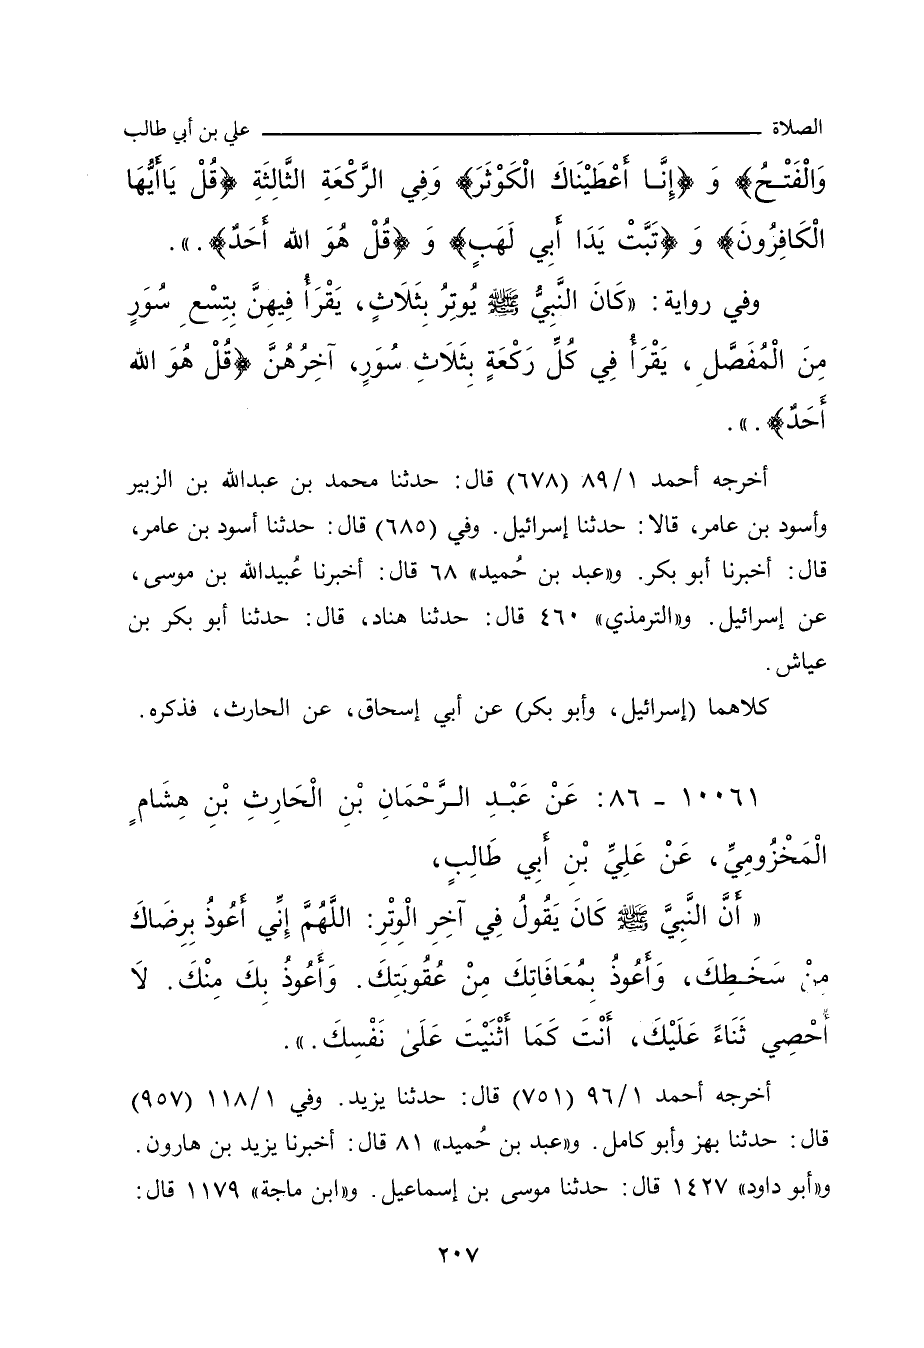 الصلاة ــــــــــــــــــــــــــــــــ علي بن أبي طالب
وَالْفَتْحُ﴾ وَ ﴿إِنَّا أَعْطَيْنَاكَ الْكَوْثَرَ﴾ وَفِي الرَّكْعَةِ الثَّالِثَةِ ﴿قُلْ يَاأَيُّهَا
الْكَافِرُونَ﴾ وَ ﴿تَبَّتْ يَدَا أَبِي لَهَبٍ﴾ وَ ﴿قُلْ هُوَ الله أَحَدٌ﴾.».
وفي رواية: «كَانَ النَّبِيُّ ﷺ يُوتِرُ بِثَلَاثٍ، يَقْرَأُ فِيهِنَّ بِتِسْعِ سُوَرٍ
مِنَ الْمُفَصَّلِ، يَقْرَأُ فِي كُلِّ رَكْعَةٍ بِثَلَاثِ سُوَرٍ، آخِرُهُنَّ ﴿قُلْ هُوَ الله
أَحَدٌ﴾.».
أخرجه أحمد ٨٩/١ (٦٧٨) قال: حدثنا محمد بن عبدالله بن الزبير
وأسود بن عامر، قالا: حدثنا إسرائيل. وفي (٦٨٥) قال: حدثنا أسود بن عامر،
قال: أخبرنا أبو بكر. و«عبد بن حُميد» ٦٨ قال: أخبرنا عُبيدالله بن موسى،
عن إسرائيل. و«الترمذي» ٤٦٠ قال: حدثنا هناد، قال: حدثنا أبو بكر بن
عياش.
كلاهما (إسرائيل، وأبو بكر) عن أبي إسحاق، عن الحارث، فذكره.
١٠٠٦١ - ٨٦: عَنْ عَبْدِ الرَّحْمَانِ بْنِ الْحَارِثِ بْنِ هِشَامٍ
الْمَخْزُومِيِّ، عَنْ عَلِيِّ بْنِ أَبِي طَالِبٍ،
« أَنَّ النَّبِيَّ ﷺ كَانَ يَقُولُ فِي آخِرِ الْوِتْرِ: اللَّهُمَّ إِنِّي أَعُوذُ بِرِضَاكَ
مِنْ سَخَطِكَ، وَأَعُوذُ بِمُعَافَاتِكَ مِنْ عُقُوبَتِكَ. وَأَعُوذُ بِكَ مِنْكَ. لَا
أُحْصِي ثَنَاءً عَلَيْكَ، أَنْتَ كَمَا أَثْنَيْتَ عَلَىٰ نَفْسِكَ.».
أخرجه أحمد ٩٦/١ (٧٥١) قال: حدثنا يزيد. وفي ١١٨/١ (٩٥٧)
قال: حدثنا بهز وأبو كامل. و«عبد بن حُميد» ٨١ قال: أخبرنا يزيد بن هارون.
و«أبو داود» ١٤٢٧ قال: حدثنا موسى بن إسماعيل. و«ابن ماجة» ١١٧٩ قال:
٢٠٧